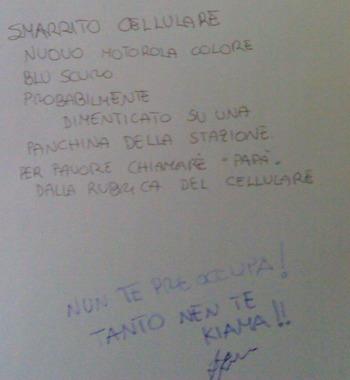 SMARRITO CELLULARE
NUOVO MOTOROLA COLORE
BLU SCURO
PROBABILMENTE
DIMENTICATO SU UNA
PANCHINA DELLA STAZIONE.
PER FAVORE CHIAMARE "PAPÀ"
DALLA RUBRICA DEL CELLULARE
NUN TE PREOCCUPA!
TANTO NEN TE
KIAMA!!